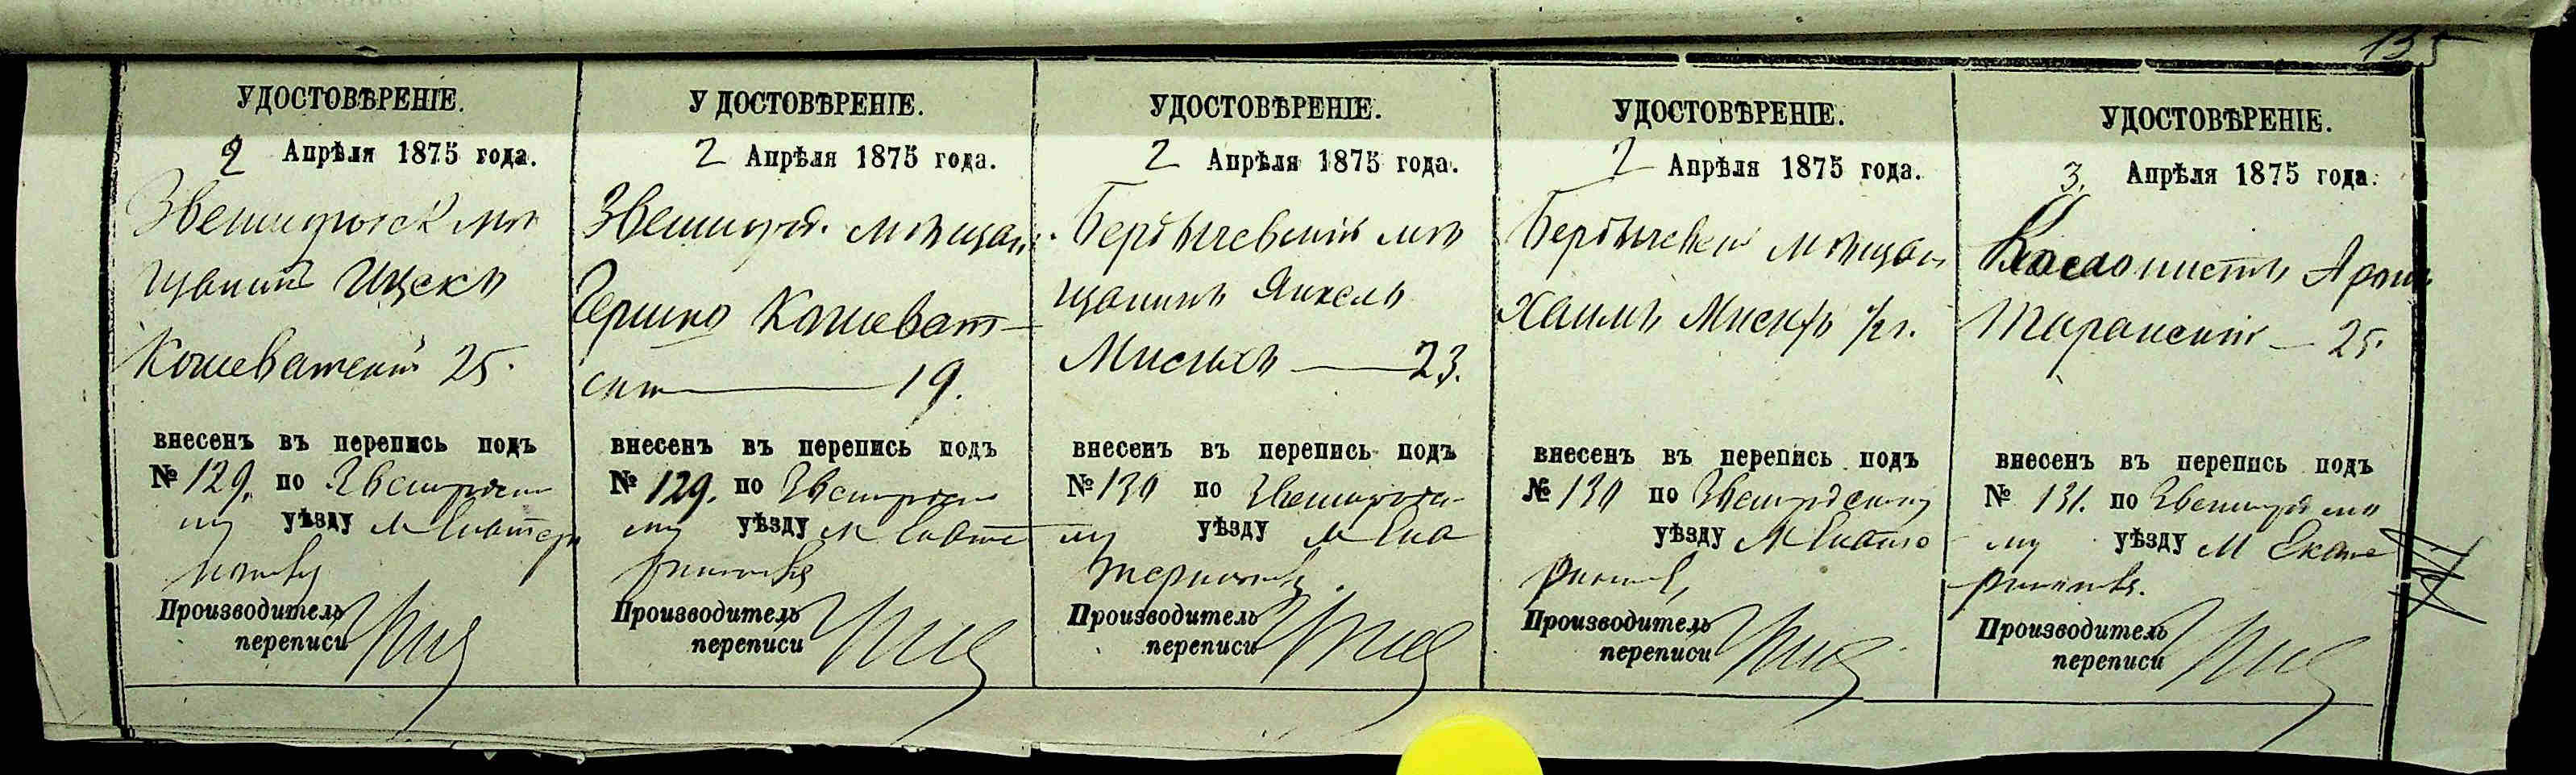 135
УДОСТОВѢРЕНІЕ.
2 Апрѣля 1875 года.
Звенигородск мѣ
щанинъ Ицекъ
Кошеватскій 25.
внесенъ въ перепись подъ
№ 129. по Звенигородско
му уѣзду М Екатери
нополь
Производитель
переписи
УДОСТОВѢРЕНІЕ.
2 Апрѣля 1875 года.
Звенигород. мѣщан.
Гершко Кошеват-
скій 19.
внесенъ въ перепись подъ
№ 129. по Звенигородско
му уѣзду М Екате
Производитель
переписи
УДОСТОВѢРЕНІЕ.
2 Апрѣля 1875 года.
Бердычевскій мѣ
щанинъ Янкель
23.
внесенъ въ перепись подъ
№ 130 по Звенигородско
му уѣзду М Ека
Производитель
переписи
УДОСТОВѢРЕНІЕ.
2 Апрѣля 1875 года.
Бердычевскі мѣщан
Хаимъ
внесенъ въ перепись подъ
№ 130 по Звенигородскому
уѣзду М Екате
Производитель
переписи
УДОСТОВѢРЕНІЕ.
3. Апрѣля 1875 года.
Колонистъ Арон
Таранскій — 25.
внесенъ въ перепись подъ
№ 131. по Звенигородско
му уѣзду М Екате
Производитель
переписи